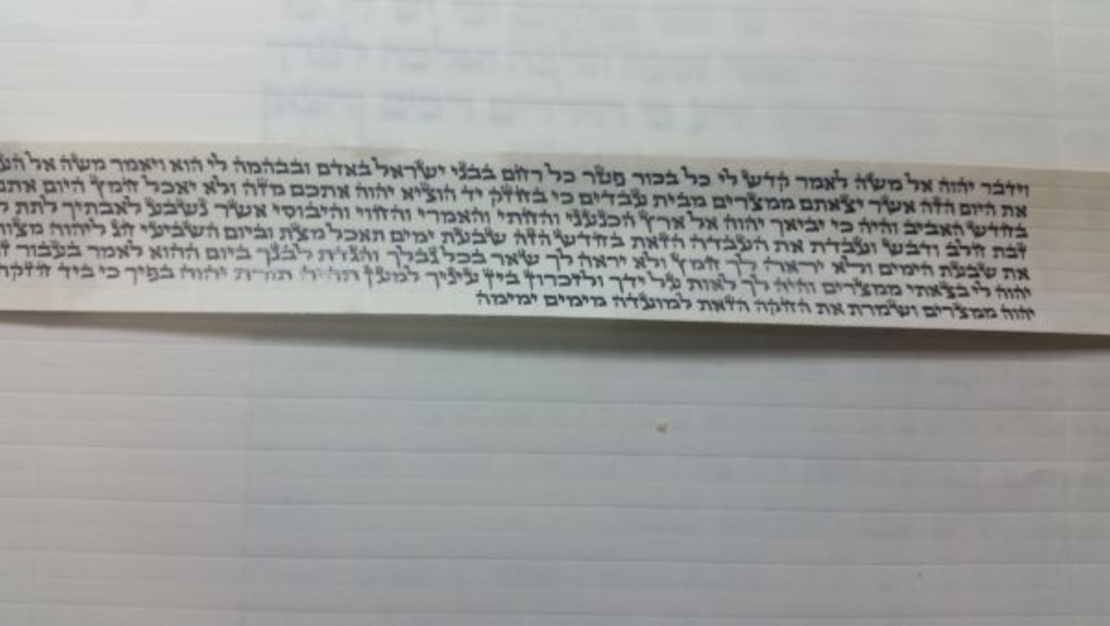 וידבר יהוה אל משה לאמר קדש לי כל בכור פטר כל רחם בבני ישראל באדם ובבהמה לי הוא ויאמר משה אל
את היום הזה אשר יצאתם ממצרים מבית עבדים כי בחזק יד הוציא יהוה אתכם מזה ולא יאכל חמץ היום
בחדש האביב והיה כי יביאך יהוה אל ארץ הכנעני והחתי והאמרי והחוי והיבוסי אשר נשבע לאבתיך לתת
זבת חלב ודבש ועבדת את העבדה הזאת בחדש הזה שבעת ימים תאכל מצת וביום השביעי חג ליהוה
את שבעת הימים ולא יראה לך חמץ ולא יראה לך שאר בכל גבלך והגדת לבנך ביום ההוא לאמר בעבור
יהוה לי בצאתי ממצרים והיה לך לאות על ידך ולזכרון בין עיניך למען תהיה תורת יהוה בפיך כי ביד חזקה
יהוה ממצרים ושמרת את החקה הזאת למועדה מימים ימימה